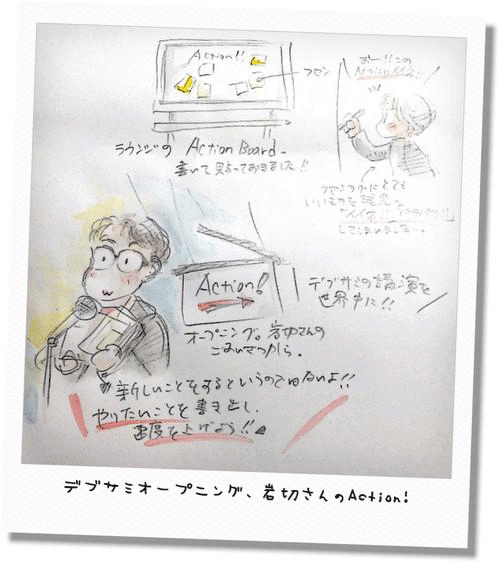 Action!!
フセン
おー!!この
Actionイイネ!!
ラウンジの Action Board-
書いて貼っておきました!!
フセンの中にとても
いいものを発見。
「イイネ!!」
してしまいました-。
Action!
デブサミの講演を
世界中に!!
オープニング。岩切さんの
ごあいさつから。
新しいことをするというのではないよ!!
やりたいことを書き出し、
速度を上げよう!!
デブサミオープニング、岩切さんのAction!